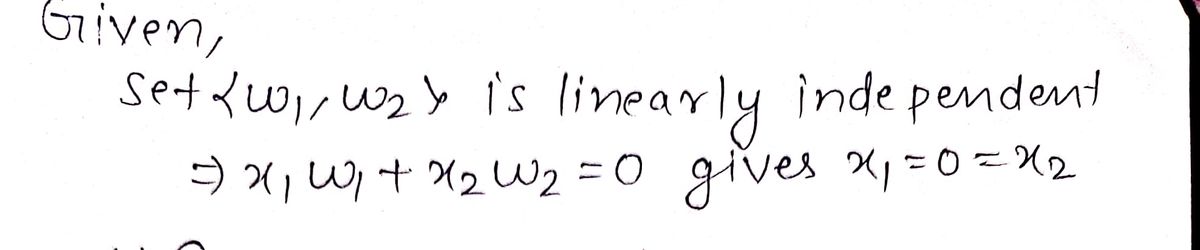 Given,
Set {w₁, w₂} is linearly independent
⇒ x₁ w₁ + x₂ w₂ = 0 gives x₁ = 0 = x₂